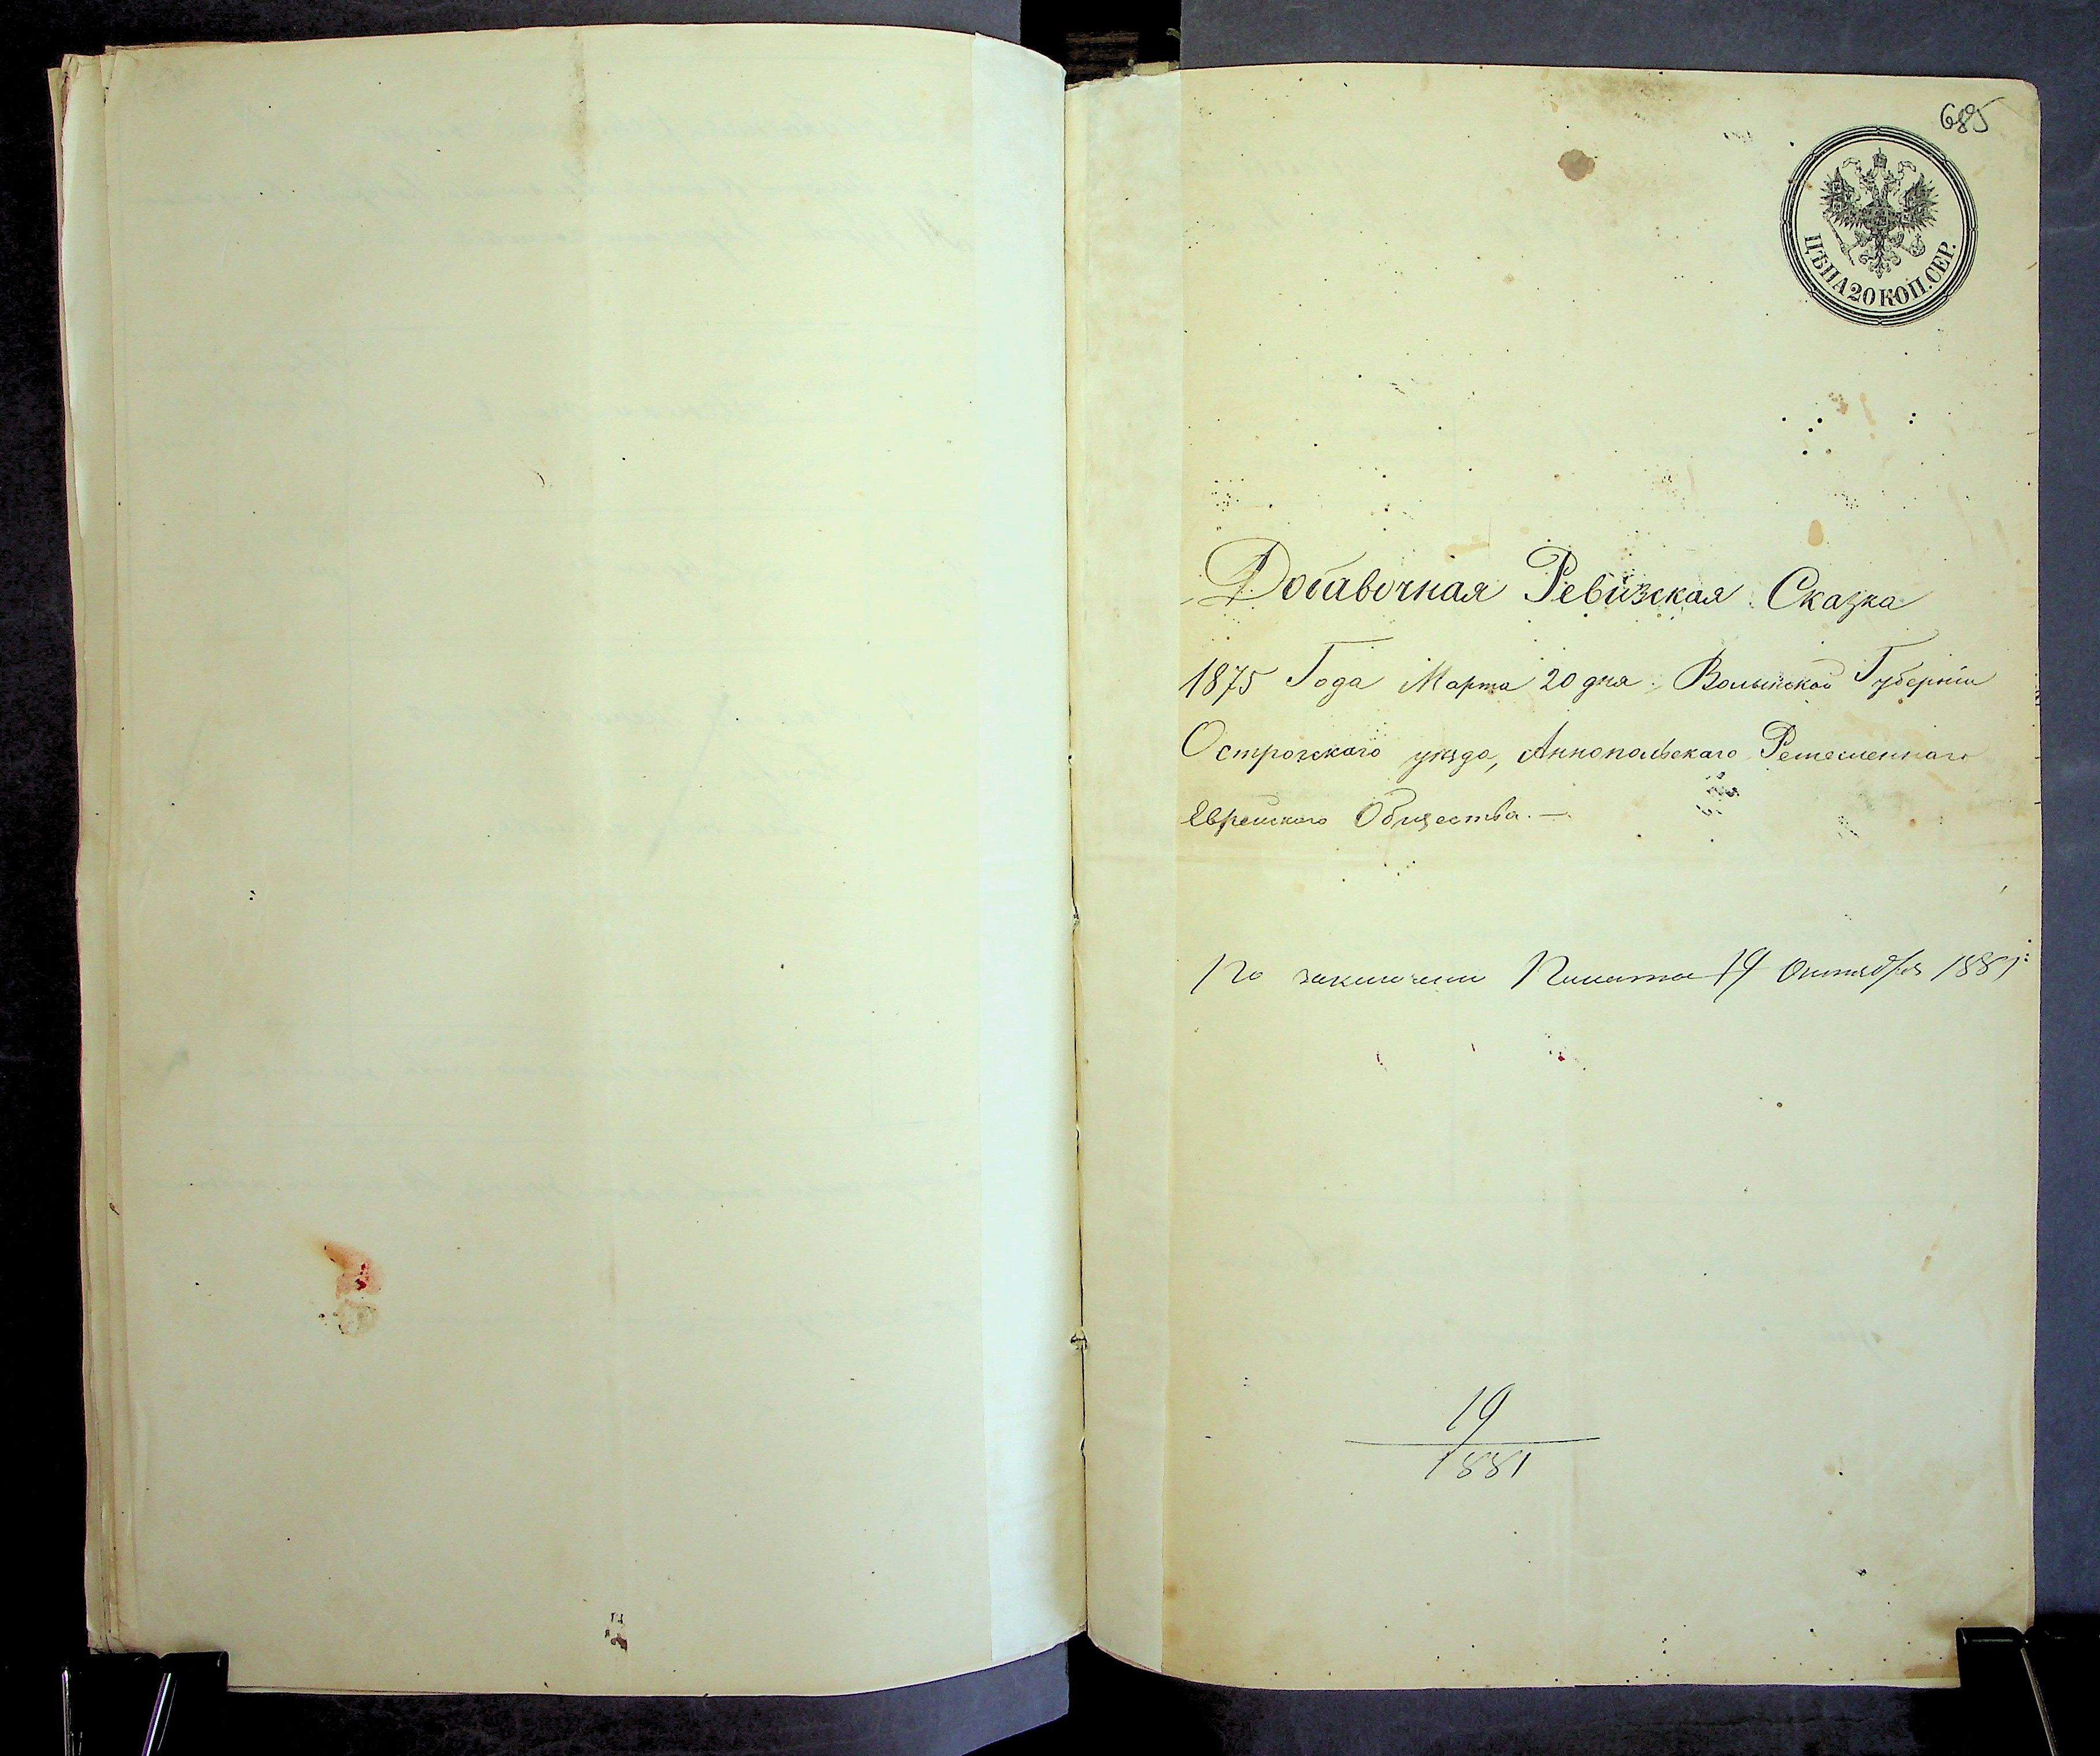 685
ЦѢНА 20 КОП. СЕР.
Добавочная Ревизская Сказка
1875 Года Марта 20 дня Волынской Губерніи
Острожского уѣзда, Аннопольскаго Ремесленнаго
Еврейскаго Общества. —
По заключенію Палаты 19 Октября 1881
19
1881